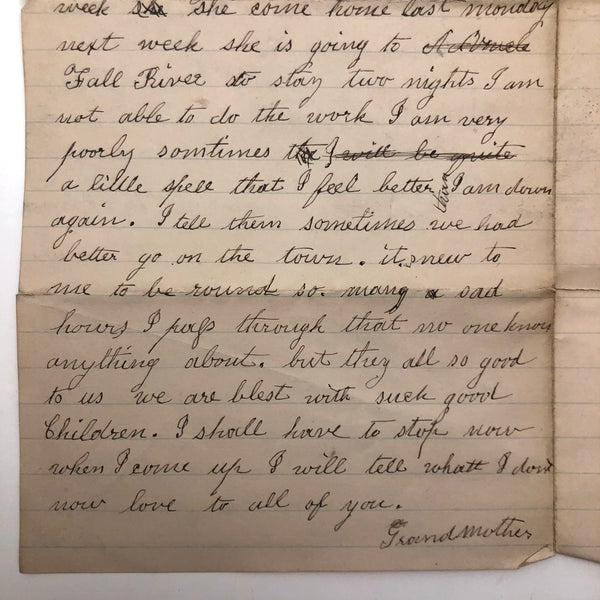 week she come home last monday
next week she is going to
Fall River to stay two nights I am
not able to do the work I am very
poorly somtimes I will be quite
a little spell that I feel better than I am down
again. I tell them sometimes we had
better go on the town. it new to
me to be round so. many a sad
hours I pass through that no one knows
anything about. but they all so good
to us we are blest with such good
Children. I shall have to stop now
when I come up I will tell whatt I dont
now love to all of you.
Grand Mother